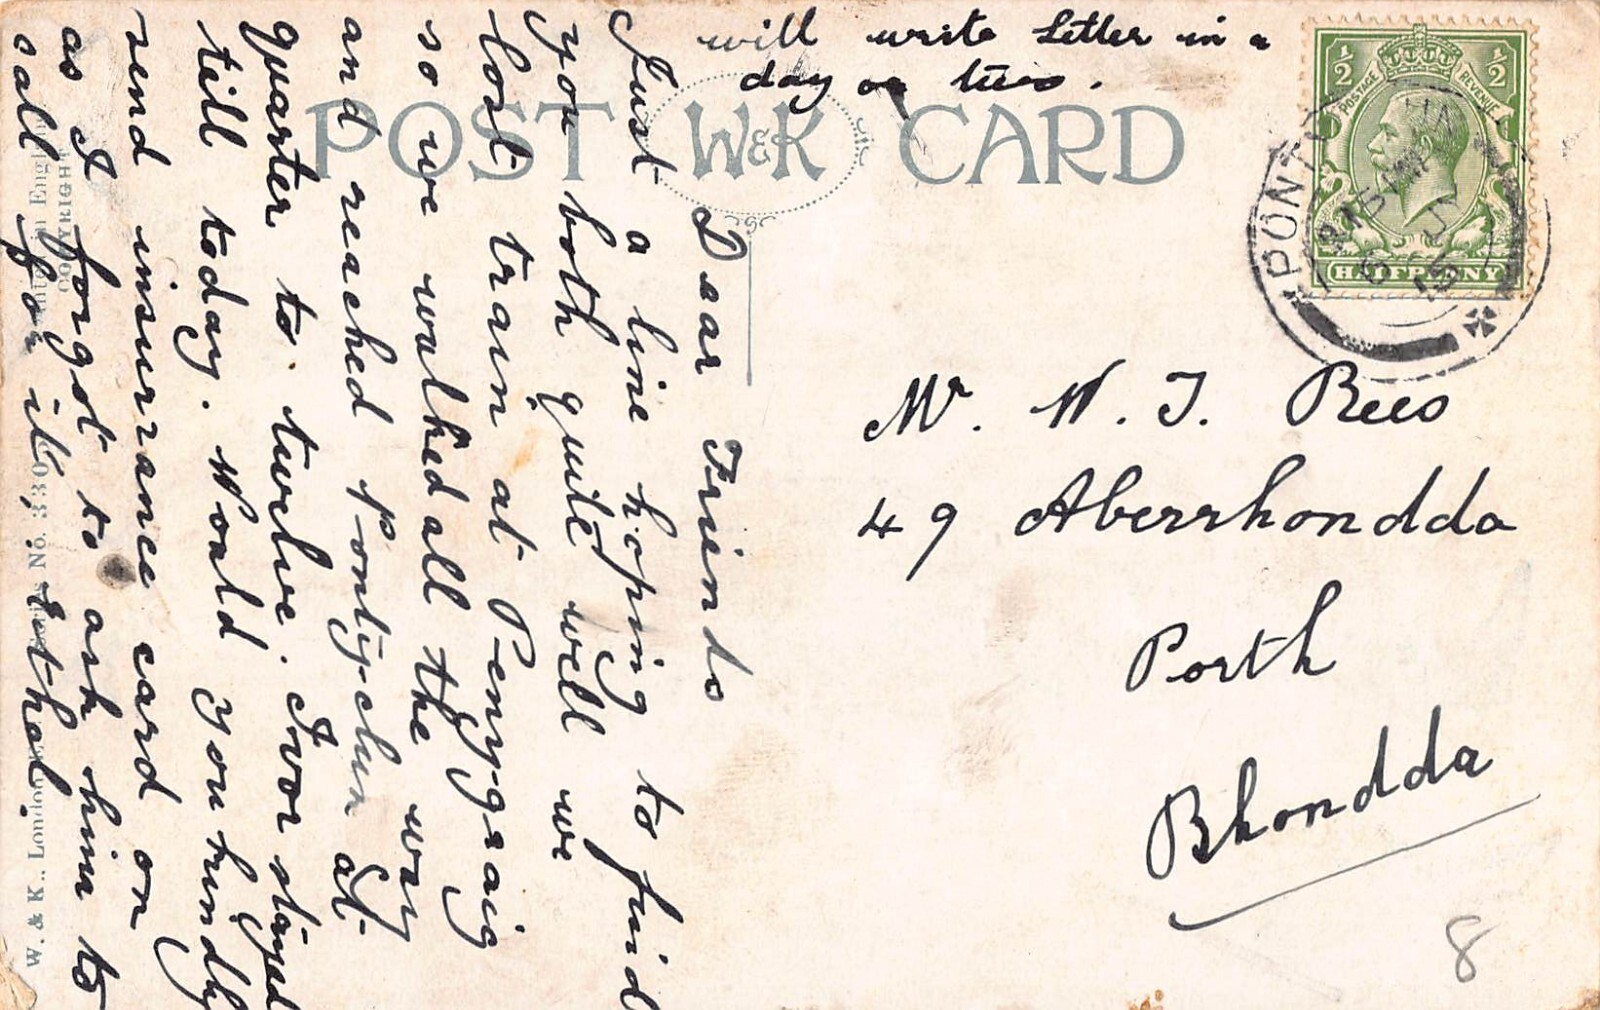 will write Letter in a
day or two.
POST W&K CARD
Dear Friends
Just a line hoping to find
you both quite well we
lost train at Penygraig
so we walked all the way
and reached Pontyclun at
quarter to twelve. Ivor stayed
till today. Would you kindly
send insurrance card on
as I forgot to ask him to
call for it, Ethel.
½ ½
POSTAGE REVENUE
HALFPENNY
PONTYCLUN
6 JY
15
Mr. W. J. Rees
49 Aberrhondda
Porth
Rhondda
8
COPYRIGHT
W. & K., London
No. 330